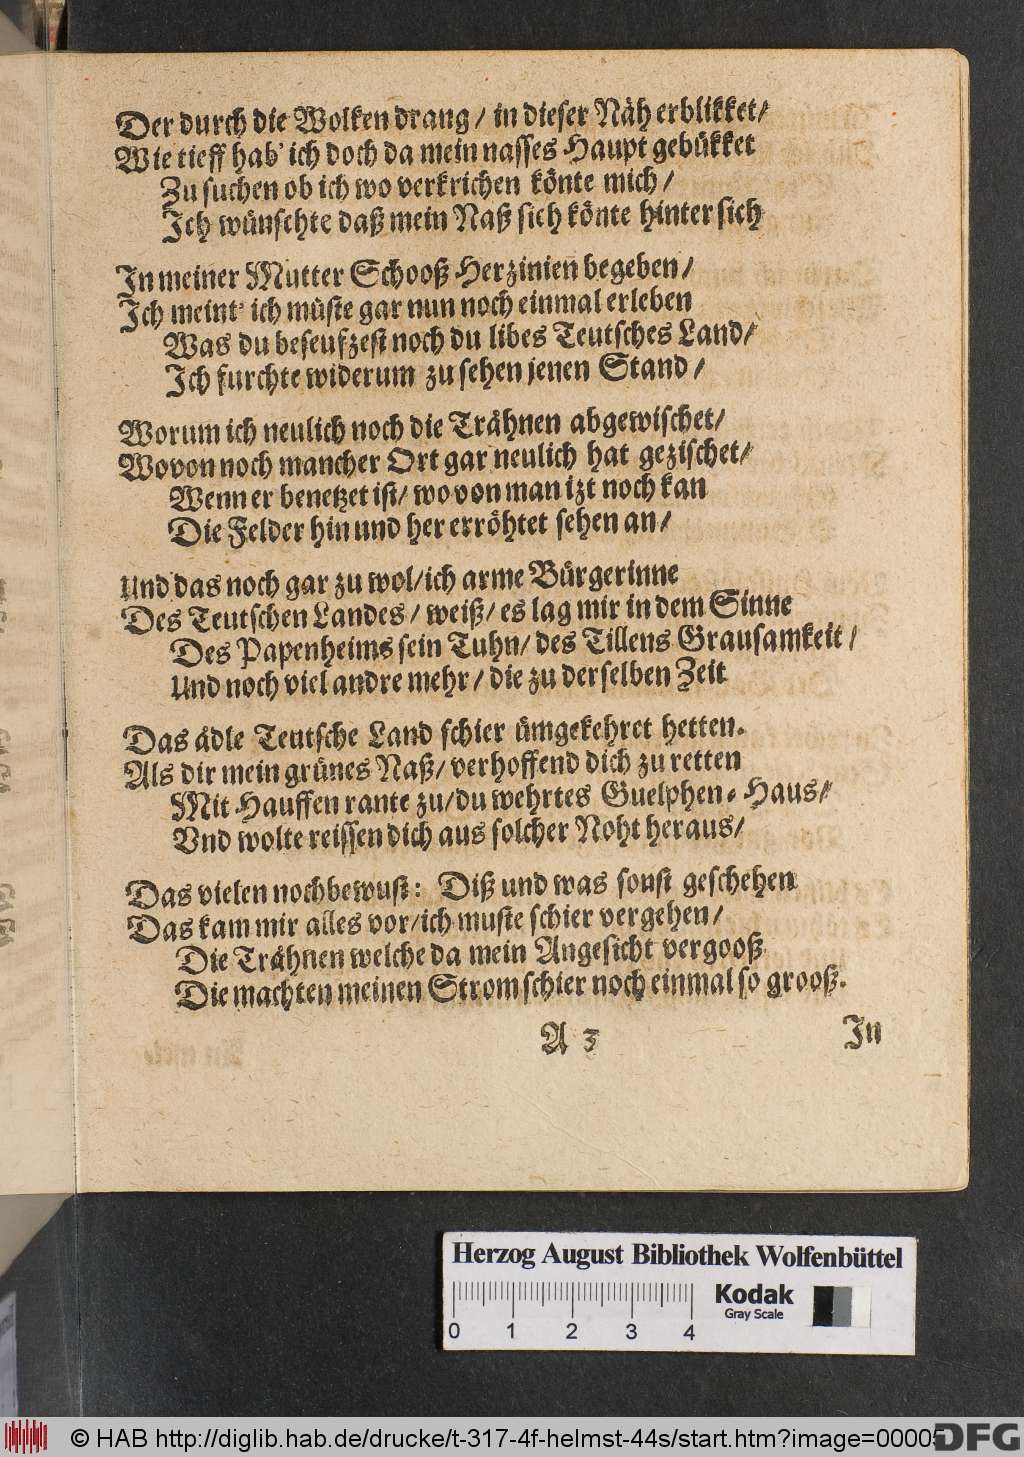 Der durch die Wolken drang / in dieser Näh erblikket /
Wie tieff hab' ich doch da mein nasses Haupt gebükket
Zu suchen ob ich wo verkrichen könte mich /
Ich wünschte daß mein Naß sich könte hinter sich
In meiner Mutter Schooß Herzinien begeben /
Ich meint' ich müste gar nun noch einmal erleben
Was du beseufzest noch du libes Teutsches Land /
Ich furchte widerum zu sehen jenen Stand /
Worum ich neulich noch die Trähnen abgewischet /
Wovon noch mancher Ort gar neulich hat gezischet /
Wenn er benetzet ist / wo von man izt noch kan
Die Felder hin und her erröhtet sehen an /
Und das noch gar zu wol / ich arme Bürgerinne
Des Teutschen Landes / weiß / es lag mir in dem Sinne
Des Papenheims sein Tuhn / des Tillens Grausamkeit /
Und noch viel andre mehr / die zu derselben Zeit
Das ädle Teutsche Land schier ümgekehret hetten.
Als dir mein grünes Naß / verhoffend dich zu retten
Mit Hauffen rante zu / du wehrtes Guelphen-Haus /
Vnd wolte reissen dich aus solcher Noht heraus /
Das vielen noch bewust: Diß und was sonst geschehen
Das kam mir alles vor / ich muste schier vergehen /
Die Trähnen welche da mein Angesicht vergooß
Die machten meinen Strom schier noch einmal so grooß.
A 3
In
Herzog August Bibliothek Wolfenbüttel
Kodak
Gray Scale
0 1 2 3 4
© HAB http://diglib.hab.de/drucke/t-317-4f-helmst-44s/start.htm?image=00005
DFG